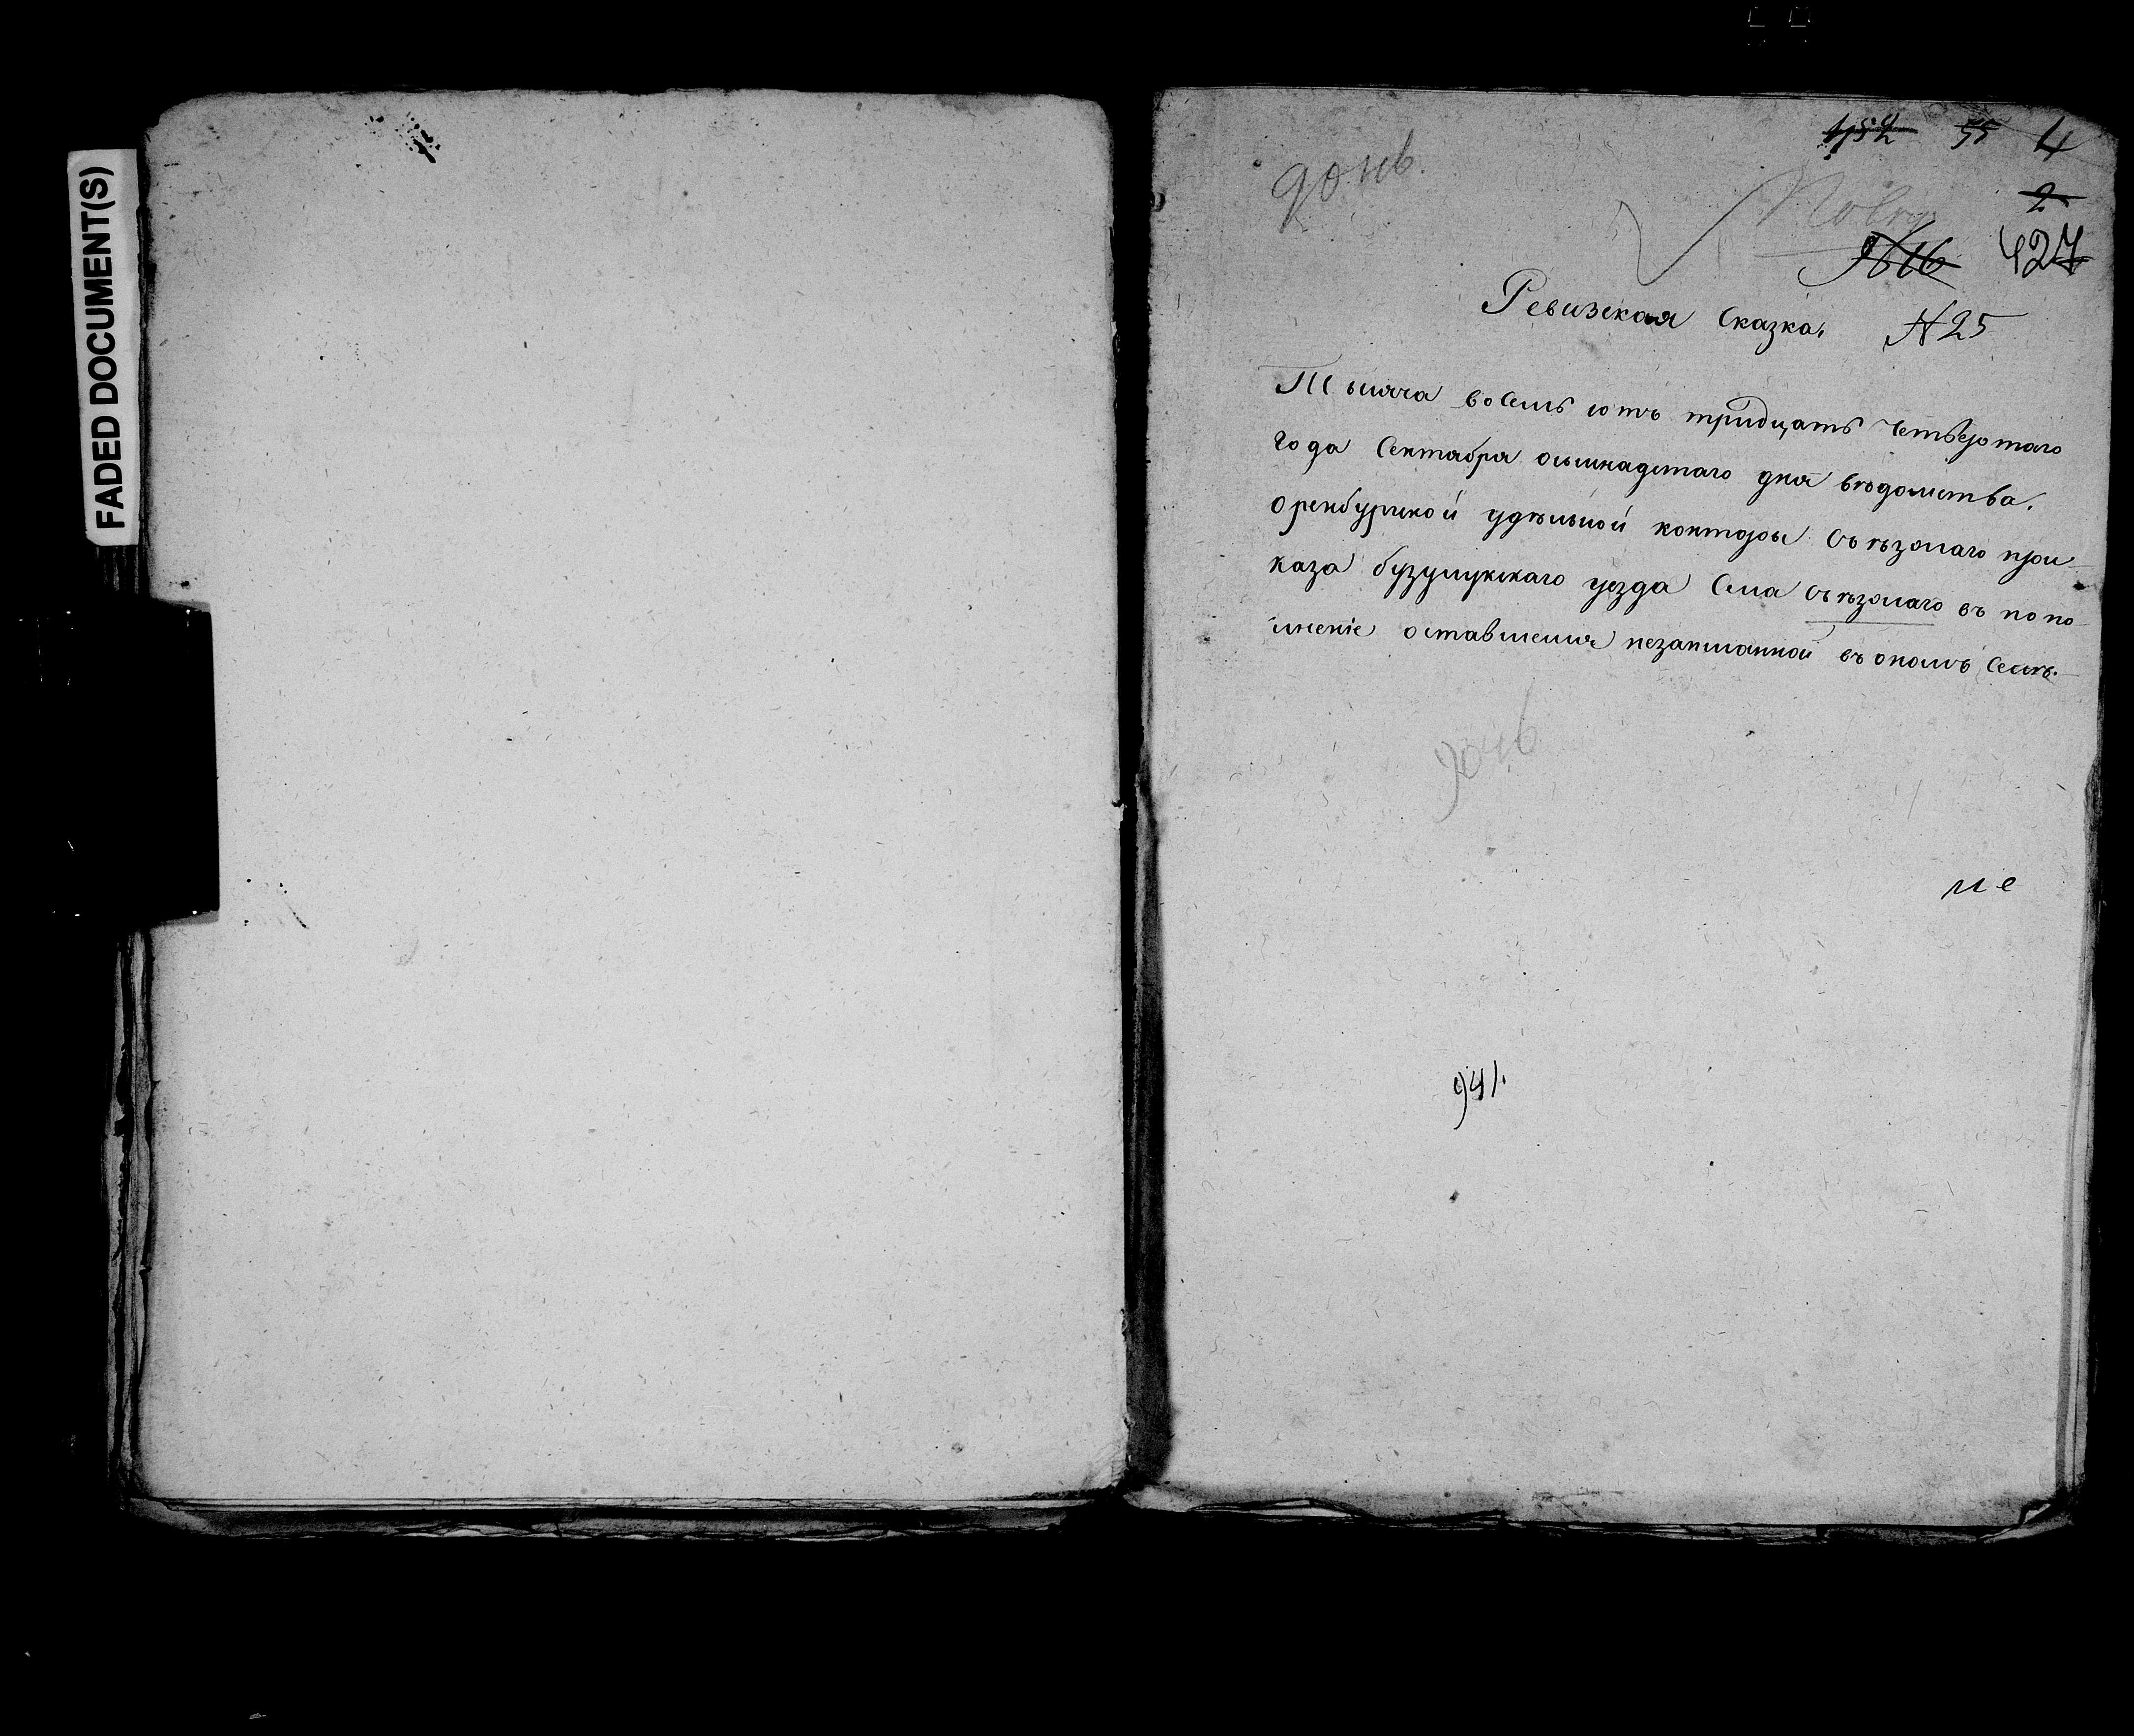 FADED DOCUMENT(S)
55 4
2
№ 16 427
Ревизская Сказка, № 25
Тысяча восемь сотъ тридцать четвертаго
года Сентября осьмнадцатаго дня вѣдомства
оренбургской удѣльной конторы Съѣзжаго при-
каза бузулукскаго уезда Села Съѣзжаго въ попо-
лнение оставшейся незаписанной въ ономъ Семь-
941.